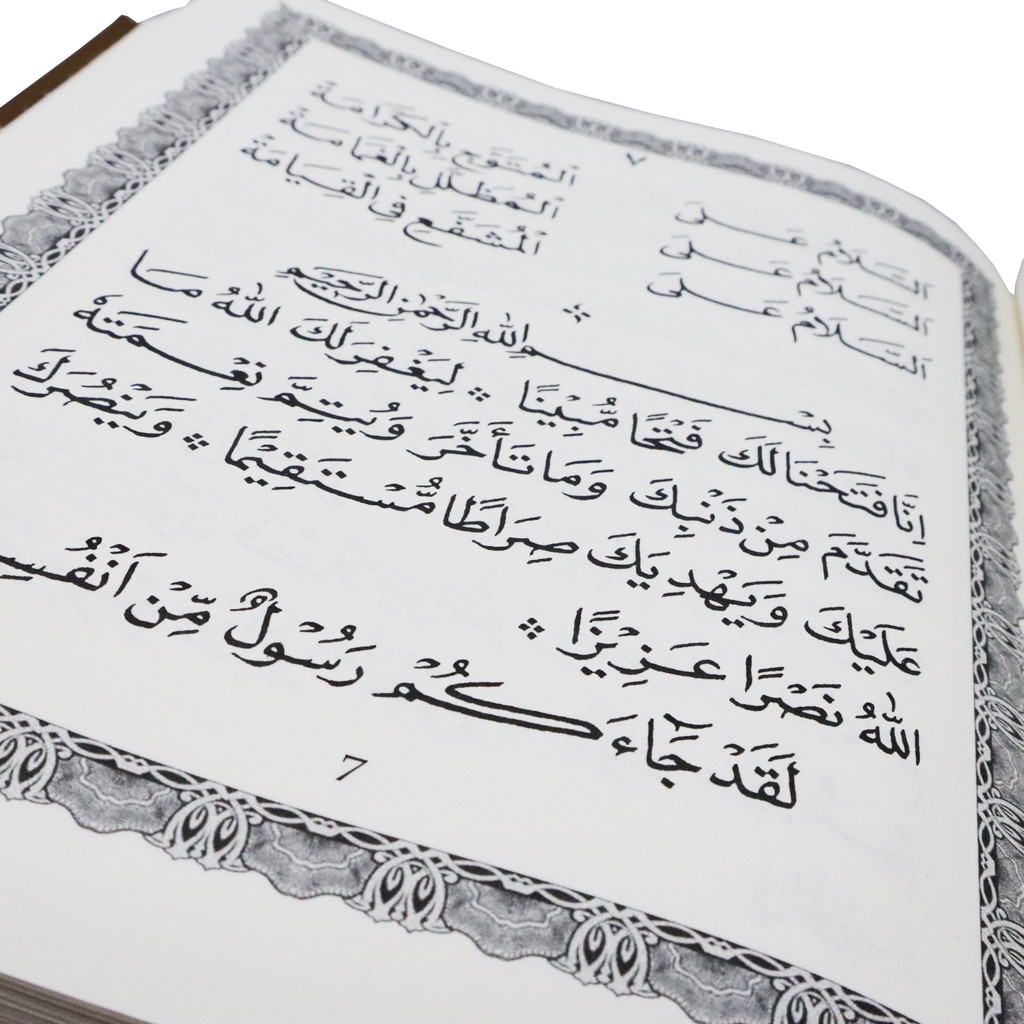 ٧
اَلسَّلَامُ عَلَى اَلْمُتَوَّجِ بِالْكَرَامَةْ
اَلسَّلَامُ عَلَى اَلْمُظَلَّلِ بِالْغَمَامَةْ
اَلسَّلَامُ عَلَى اَلْمُشَفَّعِ فِي الْقِيَامَةْ
بِسْمِ اللهِ الرَّحْمٰنِ الرَّحِيْمِ
اِنَّا فَتَحْنَا لَكَ فَتْحًا مُّبِيْنًا ۞ لِيَغْفِرَ لَكَ اللهُ مَا
تَقَدَّمَ مِنْ ذَنْبِكَ وَمَا تَأَخَّرَ وَيُتِمَّ نِعْمَتَهُ
عَلَيْكَ وَيَهْدِيَكَ صِرَاطًا مُّسْتَقِيْمًا ۞ وَيَنْصُرَكَ
اللهُ نَصْرًا عَزِيْزًا ۞
لَقَدْ جَآءَكُمْ رَسُوْلٌ مِّنْ اَنْفُسِ
7